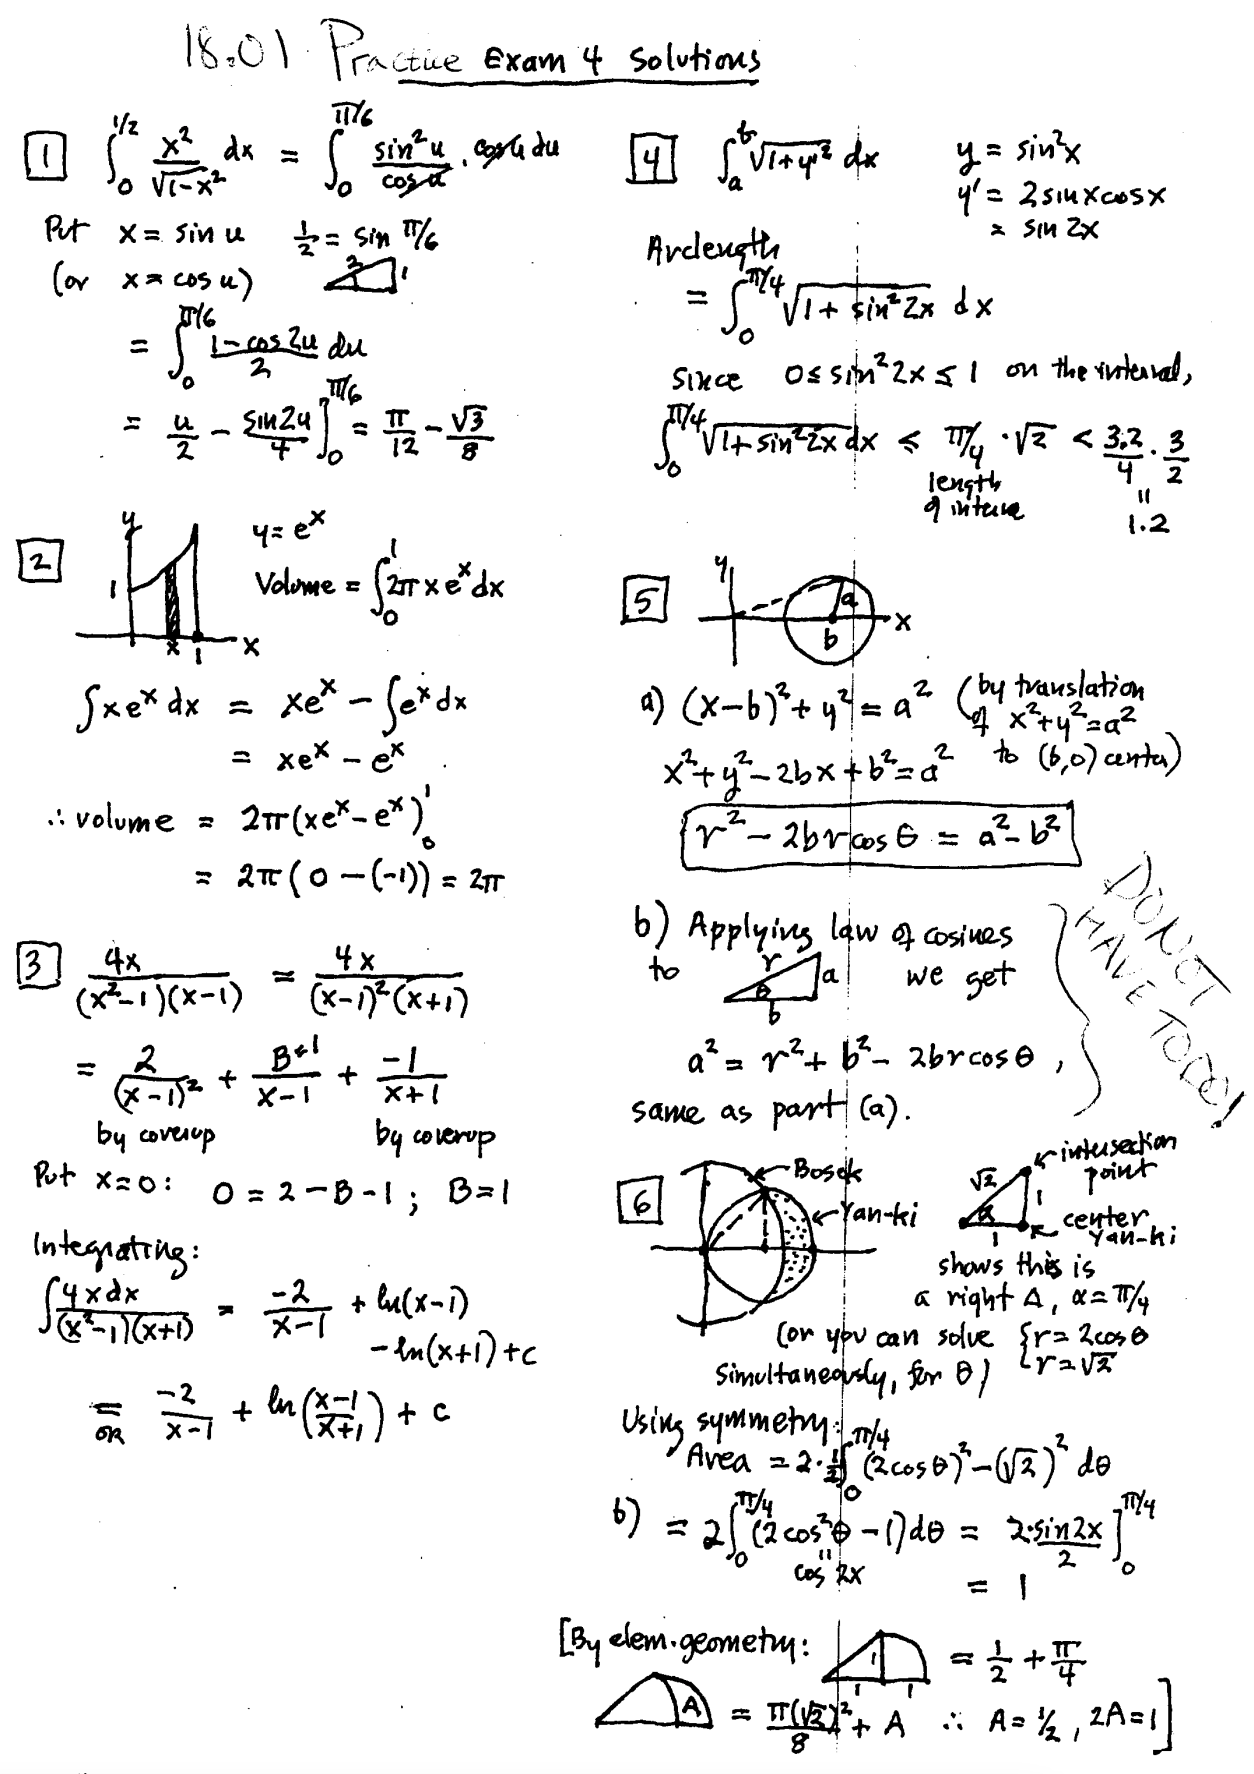 18.01 Practice Exam 4 Solutions
1 ∫₀^{1/2} x²/√(1-x²) dx = ∫₀^{π/6} sin²u/cos u · cos u du
Put x = sin u ½ = sin π/6
(or x = cos u) 2 1
= ∫₀^{π/6} (1-cos 2u)/2 du
= u/2 - sin2u/4 ]₀^{π/6} = π/12 - √3/8
2 y 1 x 1 x
y = eˣ
Volume = ∫₀¹ 2πx eˣ dx
∫xeˣ dx = xeˣ - ∫eˣ dx
= xeˣ - eˣ
∴ volume = 2π(xeˣ - eˣ)₀¹
= 2π(0 - (-1)) = 2π
3 4x/((x²-1)(x-1)) = 4x/((x-1)²(x+1))
= 2/(x-1)² + B←1/(x-1) + -1/(x+1)
by coverup by coverup
Put x=0: 0 = 2 - B - 1; B = 1
Integrating:
∫ 4x dx/((x²-1)(x+1)) = -2/(x-1) + ln(x-1)
- ln(x+1) + c
= or -2/(x-1) + ln((x-1)/(x+1)) + c
4 ∫ₐᵇ √(1+y'²) dx y = sin²x
y' = 2 sin x cos x
= sin 2x
Arclength
= ∫₀^{π/4} √(1+sin²2x) dx
Since 0 ≤ sin²2x ≤ 1 on the interval,
∫₀^{π/4} √(1+sin²2x) dx ≤ π/4 · √2 < 3.2/4 · 3/2
length
of
" 1.2
5 y a b x
a) (x-b)² + y² = a² (by translation
of x²+y²=a²
x²+y²-2bx+b²=a² to (b,0) center)
r² - 2br cos θ = a² - b²
b) Applying law of cosines
to r a θ b we get
a² = r² + b² - 2br cos θ,
same as part (a).
DON'T
HAVE TO DO!
6 Yan-ki
√2 1 α 1
intersection
point
center
Yan-ki
shows this is
a right Δ, α = π/4
(or you can solve { r = 2cos θ
simultaneously, for θ) r = √2
Using symmetry:
Area = 2·½ ∫₀^{π/4} (2cos θ)² - (√2)² dθ
b) = 2∫₀^{π/4} (2cos²θ - 1)dθ = 2·sin2x/2 ]₀^{π/4}
" cos 2x
= 1
[By elem. geometry: 1 1 1 = ½ + π/4
A = π(√2)²/8 + A ∴ A = ½, 2A = 1]